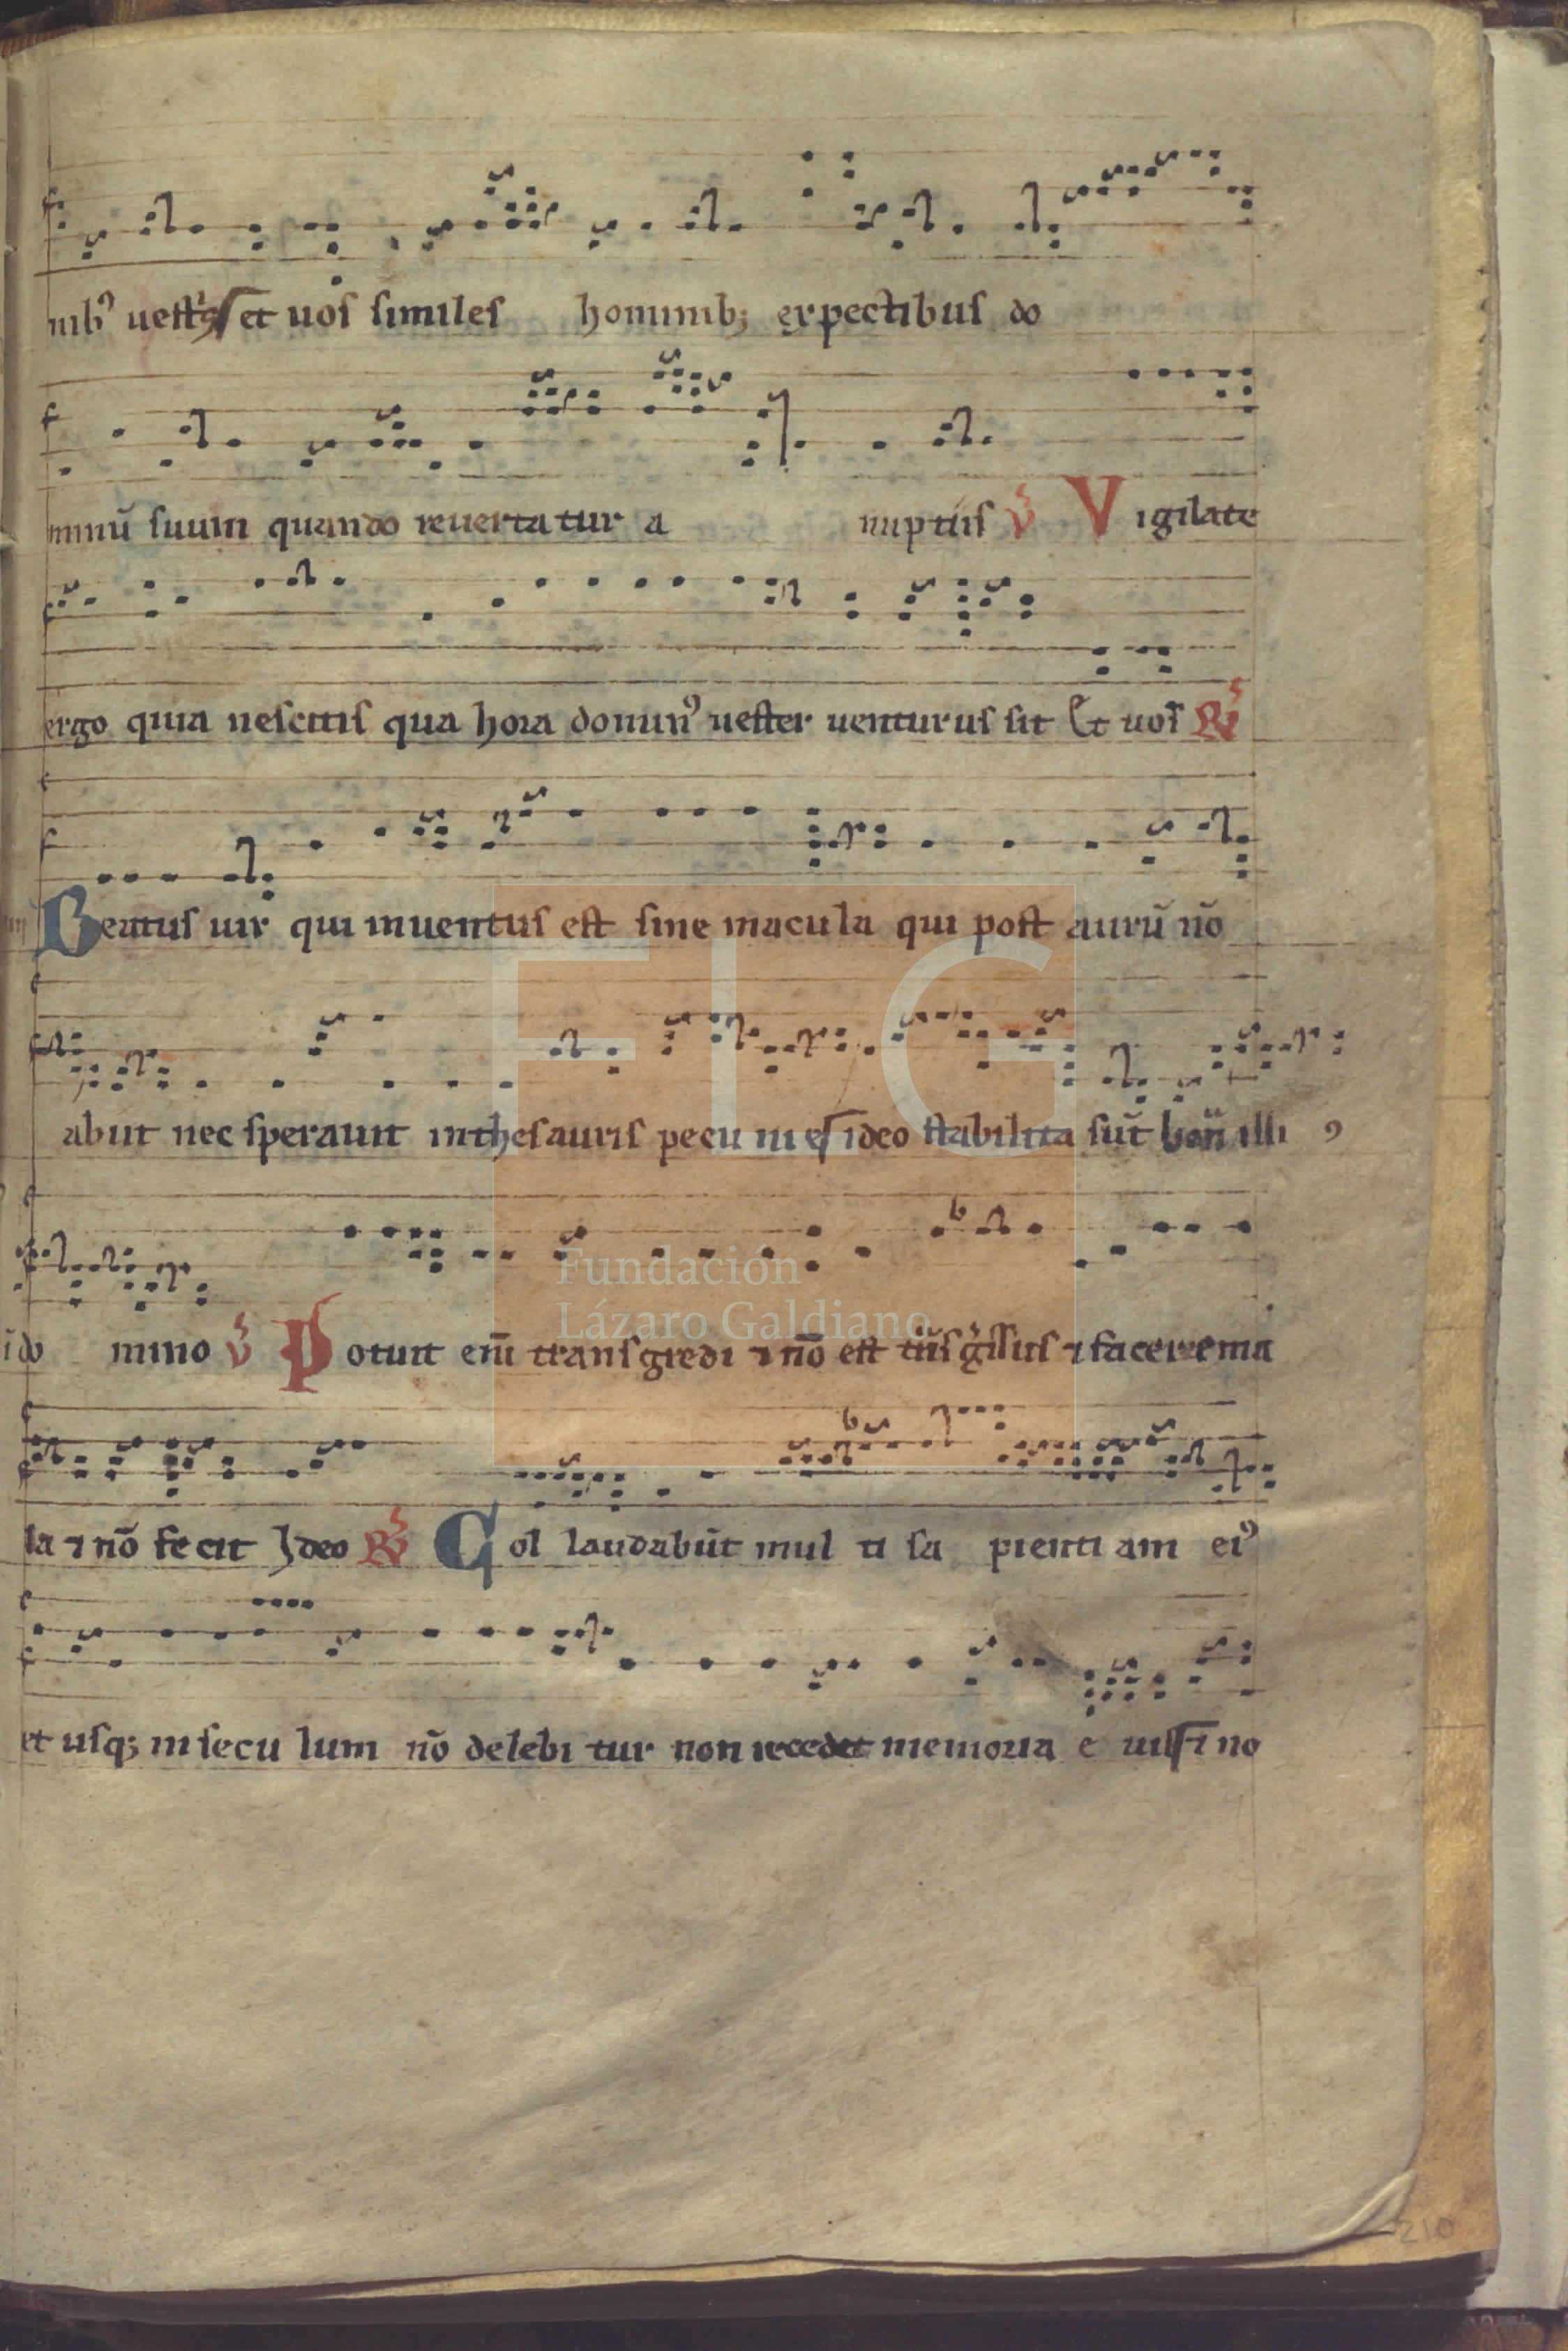 nib⁹ uestr̄is et uos similes hominib; expectibus do
minū suum quando reuerta tur a nuptiis ℣ Vigilate
ergo quia nescitis qua hora domin⁹ uester uenturus sit Et uos ℟
Beatus uir qui inuentus est sine macula qui post aurū nō
abiit nec sperauit in thesauris pecu nie ideo stabilita sūt bon̄ illi ⁹
ī do mino ℣ Potuit eni̅ transgredi ⁊ nō est ⁊ facere ma
la ⁊ nō fe cit Ideo ℟ Col laudabūt mul ti sa pienti am ei⁹
et usq; in secu lum nō delebi tur non recedet memoria e ius ⁊ no
FLG
Fundación
Lázaro Galdiano
210